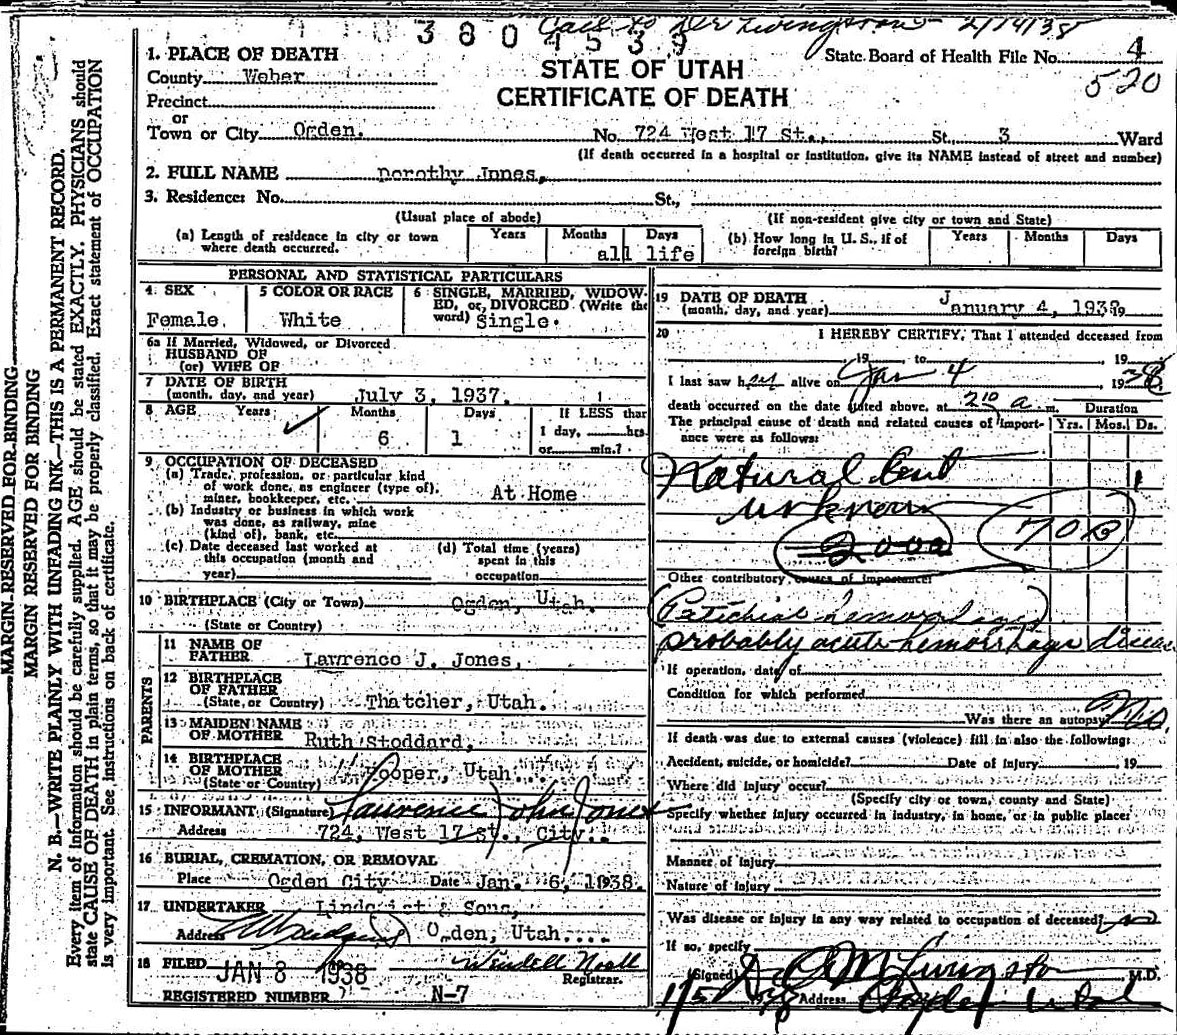 3804539 Call to Dr Livingston 2/14/38
1. PLACE OF DEATH
State Board of Health File No. 4
County Weber
STATE OF UTAH
520
Precinct
CERTIFICATE OF DEATH
or
Town or City Ogden. No. 724 West 17 St., St. 3 Ward
(If death occurred in a hospital or institution, give its NAME instead of street and number)
2. FULL NAME Dorothy Jones,
3. Residence: No. St.,
(Usual place of abode) (If non-resident give city or town and State)
(a) Length of residence in city or town where death occurred. Years Months Days all life
(b) How long in U. S., if of foreign birth? Years Months Days
PERSONAL AND STATISTICAL PARTICULARS
4 SEX Female.
5 COLOR OR RACE White
6 SINGLE, MARRIED, WIDOWED, or, DIVORCED (Write the word) Single.
6a If Married, Widowed, or Divorced
HUSBAND OF
(or) WIFE OF
7 DATE OF BIRTH
(month, day, and year) July 3, 1937.
8 AGE Years Months Days If LESS than
6 1 1 day, hrs.
or min.?
9 OCCUPATION OF DECEASED
(a) Trade, profession, or particular kind
of work done, as engineer (type of),
miner, bookkeeper, etc. At Home
(b) Industry or business in which work
was done, as railway, mine
(kind of), bank, etc.
(c) Date deceased last worked at
this occupation (month and
year)
(d) Total time (years)
spent in this
occupation
10 BIRTHPLACE (City or Town) Ogden, Utah.
(State or Country)
PARENTS
11 NAME OF
FATHER Lawrence J. Jones,
12 BIRTHPLACE
OF FATHER
(State, or Country) Thatcher, Utah.
13 MAIDEN NAME
OF MOTHER Ruth Stoddard,
14 BIRTHPLACE
OF MOTHER
(State or Country) Hooper, Utah.
15 INFORMANT (Signature) Lawrence John Jones
Address 724, West 17 St., City.
16 BURIAL, CREMATION, OR REMOVAL
Place Ogden City Date Jan. 6, 1938.
17 UNDERTAKER Lindquist & Sons,
Address Ogden, Utah....
18 FILED JAN 8 1938 Registrar.
REGISTERED NUMBER N-7
19 DATE OF DEATH
(month, day, and year) January 4, 1938
20 I HEREBY CERTIFY, That I attended deceased from
19 , to , 19
I last saw her alive on Jan 4 , 1938
death occurred on the date stated above, at 2 10 a m.
The principal cause of death and related causes of importance were as follows:
Duration
Yrs. Mos. Ds.
Natural but 1
unknown
200a 70B
Other contributory causes of importance:
(Petechial hemorrhages)
probably acute hemorrhagic disease
If operation, date of
Condition for which performed
Was there an autopsy? No.
If death was due to external causes (violence) fill in also the following:
Accident, suicide, or homicide? Date of injury 19
Where did injury occur?
(Specify city or town, county and State)
Specify whether injury occurred in industry, in home, or in public place:
Manner of Injury
Nature of Injury
Was disease or Injury in any way related to occupation of deceased? no
If so, specify
(Signed) Dr. M Livingston M.D.
1/5 Address Ogden Utah
MARGIN RESERVED FOR BINDING
MARGIN RESERVED FOR BINDING
N. B.—WRITE PLAINLY WITH UNFADING INK—THIS IS A PERMANENT RECORD.
Every item of information should be carefully supplied. AGE should be stated EXACTLY. PHYSICIANS should
state CAUSE OF DEATH in plain terms, so that it may be properly classified. Exact statement of OCCUPATION
is very important. See instructions on back of certificate.